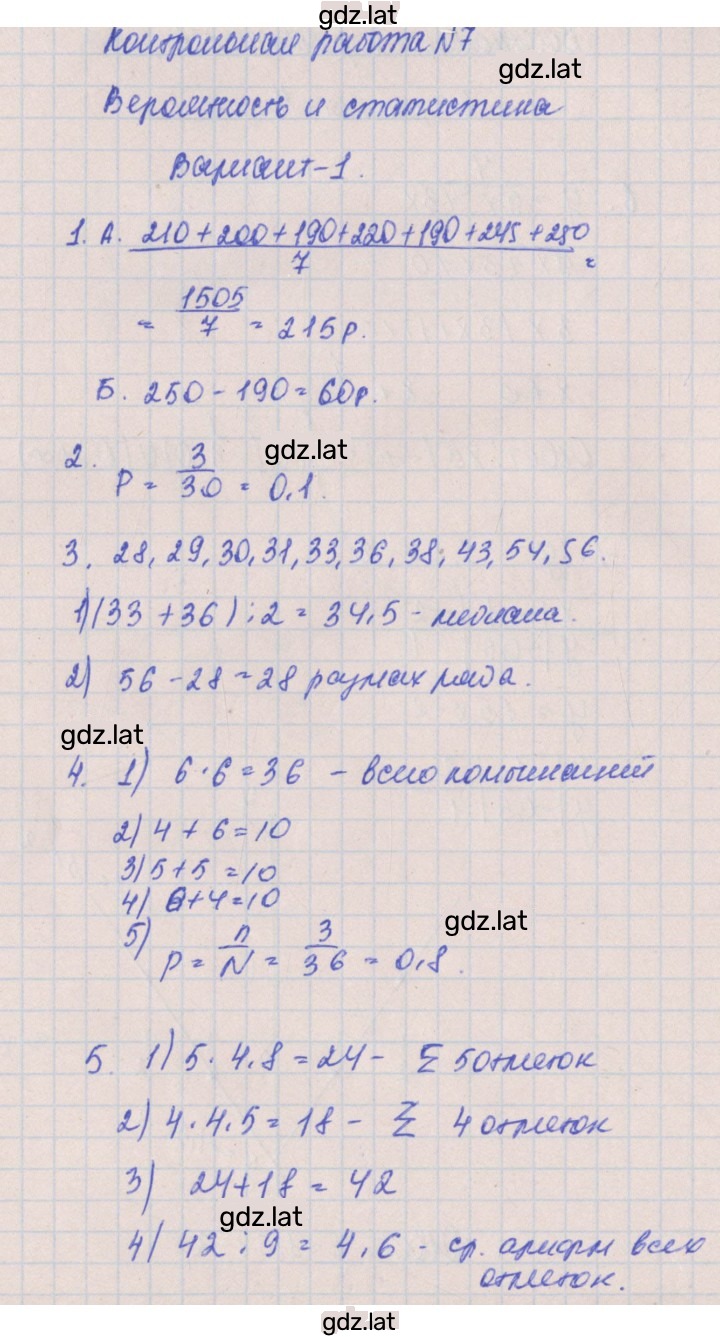 gdz.lat
Контрольная работа N7
gdz.lat
Вероятность и статистика
Вариант-1.
1. А. 210+200+190+220+190+245+250
7 =
= 1505
7 = 215р.
Б. 250-190=60р.
gdz.lat
2. P = 3
30 = 0,1.
3. 28, 29, 30, 31, 33, 36, 38, 43, 54, 56.
1) (33+36):2 = 34,5 - медиана.
2) 56-28=28 размах ряда.
gdz.lat
4. 1) 6·6=36 - всего комбинаций
2) 4+6=10
3) 5+5=10
4) 6+4=10
gdz.lat
5) P = n
N = 3
36 = 0,8.
5. 1) 5·4,8=24- Σ 5 отметок
2) 4·4,5=18- Σ 4 отметок
3) 24+18=42
gdz.lat
4) 42:9=4,6 - ср. арифм всех
отметок.
gdz.lat